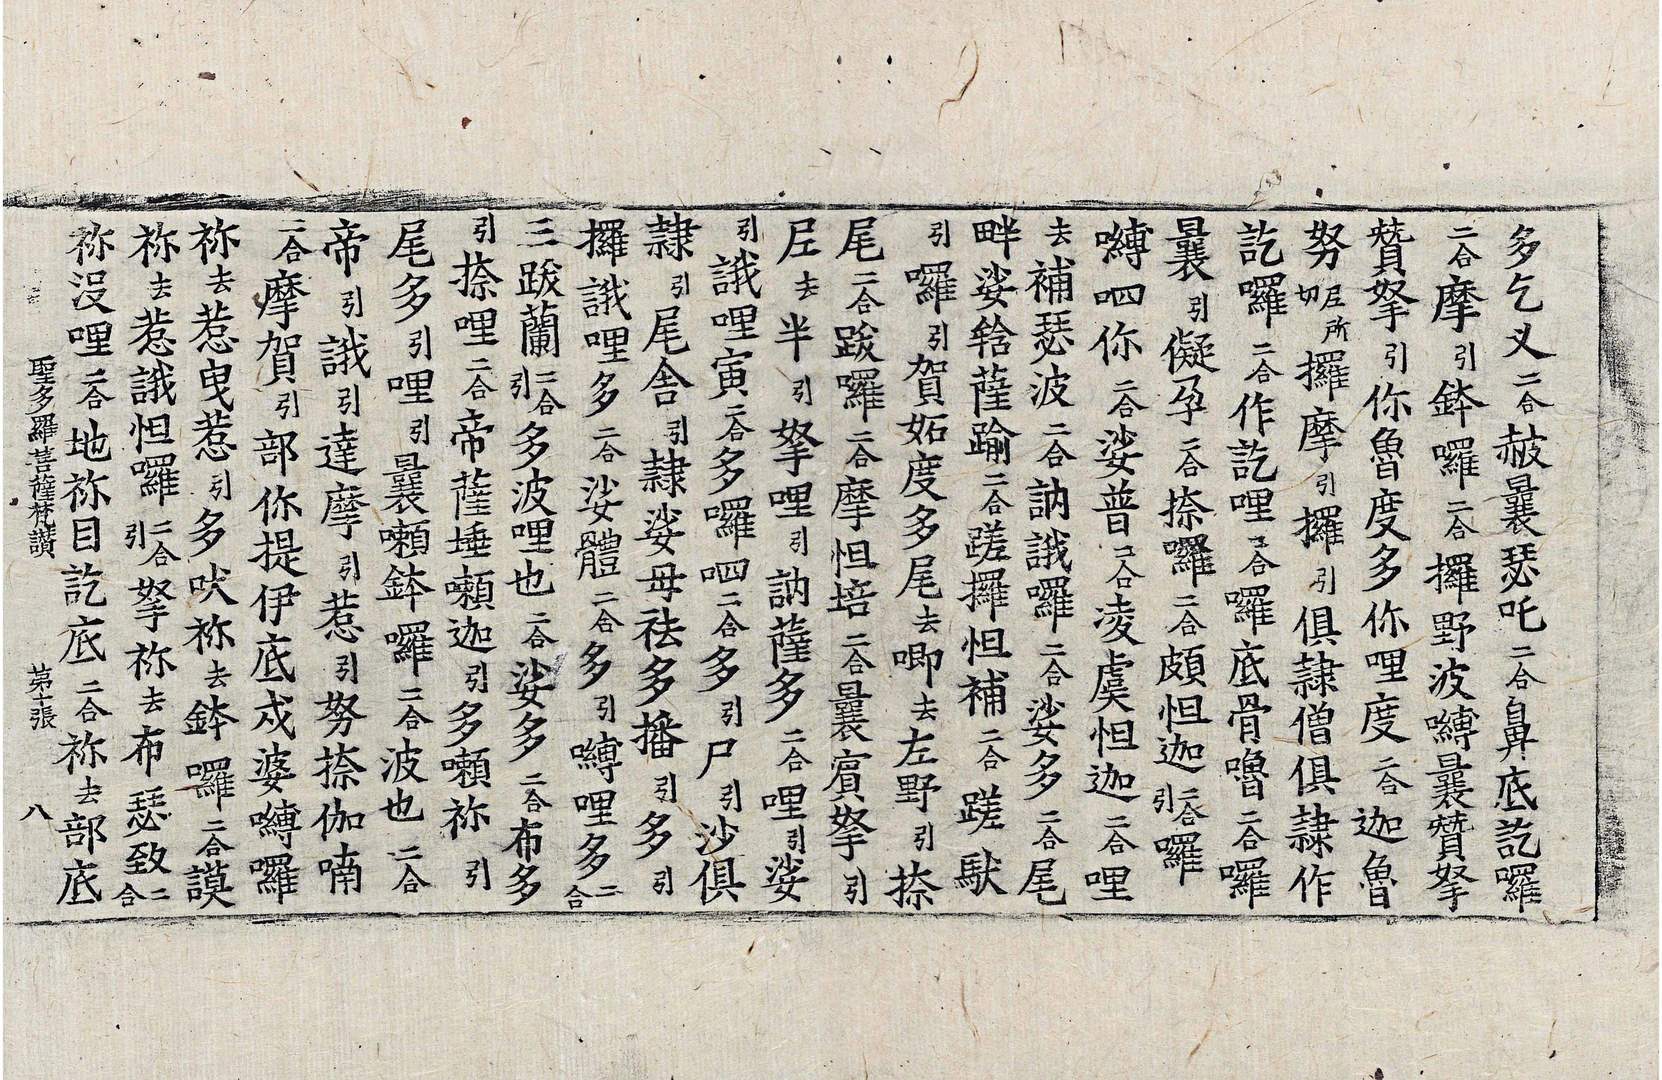 多乞叉二合赧曩瑟吒二合鼻底訖囉
二合摩引鉢囉二合攞野波嚩曩贊拏
贊拏引你魯度多你哩度二合迦魯
努尼所切攞摩引攞引俱隷僧俱隷作
訖囉二合作訖哩二合囉底骨嚕二合囉
曩引儗孕二合捺囉二合頗怛迦二合引囉
嚩呬你二合娑普二合凌虞怛迦二合哩
去補瑟波二合訥誐囉二合娑多二合尾
畔娑䭾薩踰二合蹉攞怛補二合蹉馱
引囉引賀妬度多尾去唧去左野引捺
尾二合跋囉二合摩怛培二合曩賓拏引
尼去半引拏哩引訥薩多二合哩引娑
引誐哩寅二合多囉呬二合多引尸引沙俱
隷引尾舍引隷娑毋祛多播引多引
攞誐哩多二合娑體二合多引嚩哩多二合
三跋蘭二合引多波哩也二合娑多二合布多
引捺哩二合帝薩埵嚬迦引多嚬祢引
尾多引哩引曩嚬鉢囉二合波也二合
帝引誐引達摩引惹引努捺伽喃
二合摩賀引部你提伊底成婆嚩囉
祢去惹曳惹引多吠祢去鉢囉二合謨
祢去惹誐怛囉二合引拏祢去布瑟致二合
祢沒哩二合地祢目訖底二合祢去部底
聖多羅菩薩梵讚　第十張　八